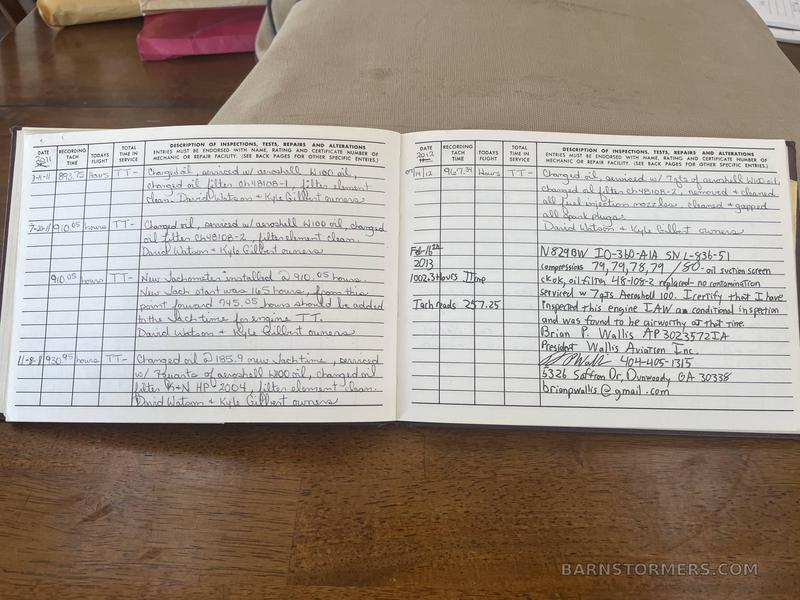 DATE
2011
RECORDING TACH TIME
TODAYS FLIGHT
TOTAL TIME IN SERVICE
DESCRIPTION OF INSPECTIONS, TESTS, REPAIRS AND ALTERATIONS
ENTRIES MUST BE ENDORSED WITH NAME, RATING AND CERTIFICATE NUMBER OF
MECHANIC OR REPAIR FACILITY. (SEE BACK PAGES FOR OTHER SPECIFIC ENTRIES.)
3-11-11 893.75 hours TT- Changed oil, serviced w/ aeroshell W100 oil,
changed oil filter CH48108-1, filter element
clean. David Watson & Kyle Gilbert owners
7-20-11 910.05 hours TT- Changed oil, serviced w/ aeroshell W100 oil, changed
oil filter CH48108-2, filter element clean.
David Watson & Kyle Gilbert owners
910.05 hours TT- New Tachometer installed @ 910.05 hours.
New Tach start was 165 hours, from this
point forward 745.05 hours should be added
to the Tach time for engine TT.
David Watson & Kyle Gilbert owners
11-8-11 930.95 hours TT- Changed oil @ 185.9 new Tach time, serviced
w/ 7 quarts of aeroshell W100 oil, changed oil
filter K+N HP 2004, filter element clean.
David Watson & Kyle Gilbert owners
DATE
2012
RECORDING TACH TIME
TODAYS FLIGHT
TOTAL TIME IN SERVICE
DESCRIPTION OF INSPECTIONS, TESTS, REPAIRS AND ALTERATIONS
ENTRIES MUST BE ENDORSED WITH NAME, RATING AND CERTIFICATE NUMBER OF
MECHANIC OR REPAIR FACILITY. (SEE BACK PAGES FOR OTHER SPECIFIC ENTRIES.)
967.34 Hours TT- Changed oil, serviced w/ 7 qts of aeroshell W100 oil,
changed oil filter CH48108-2, removed & cleaned
all fuel injection nozzles, cleaned & gapped
all spark plugs.
David Watson & Kyle Gilbert owners
Feb-16th N829BW IO-360-A1A SN L-836-51
2013 compressions 79,79,78,79 /80 - oil suction screen
1002.3 Hours TTmp ck ok, oil filter 48-108-2 replaced - no contamination
serviced w 7 qts Aeroshell 100. I certify that I have
Tach reads 257.25 inspected this engine IAW an conditional inspection
and was found to be airworthy at that time.
Brian P. Wallis AP 3023572IA
President Wallis Aviation Inc.
404-405-1315
5326 Saffron Dr, Dunwoody GA 30338
brianpwallis@gmail.com
BARNSTORMERS.COM